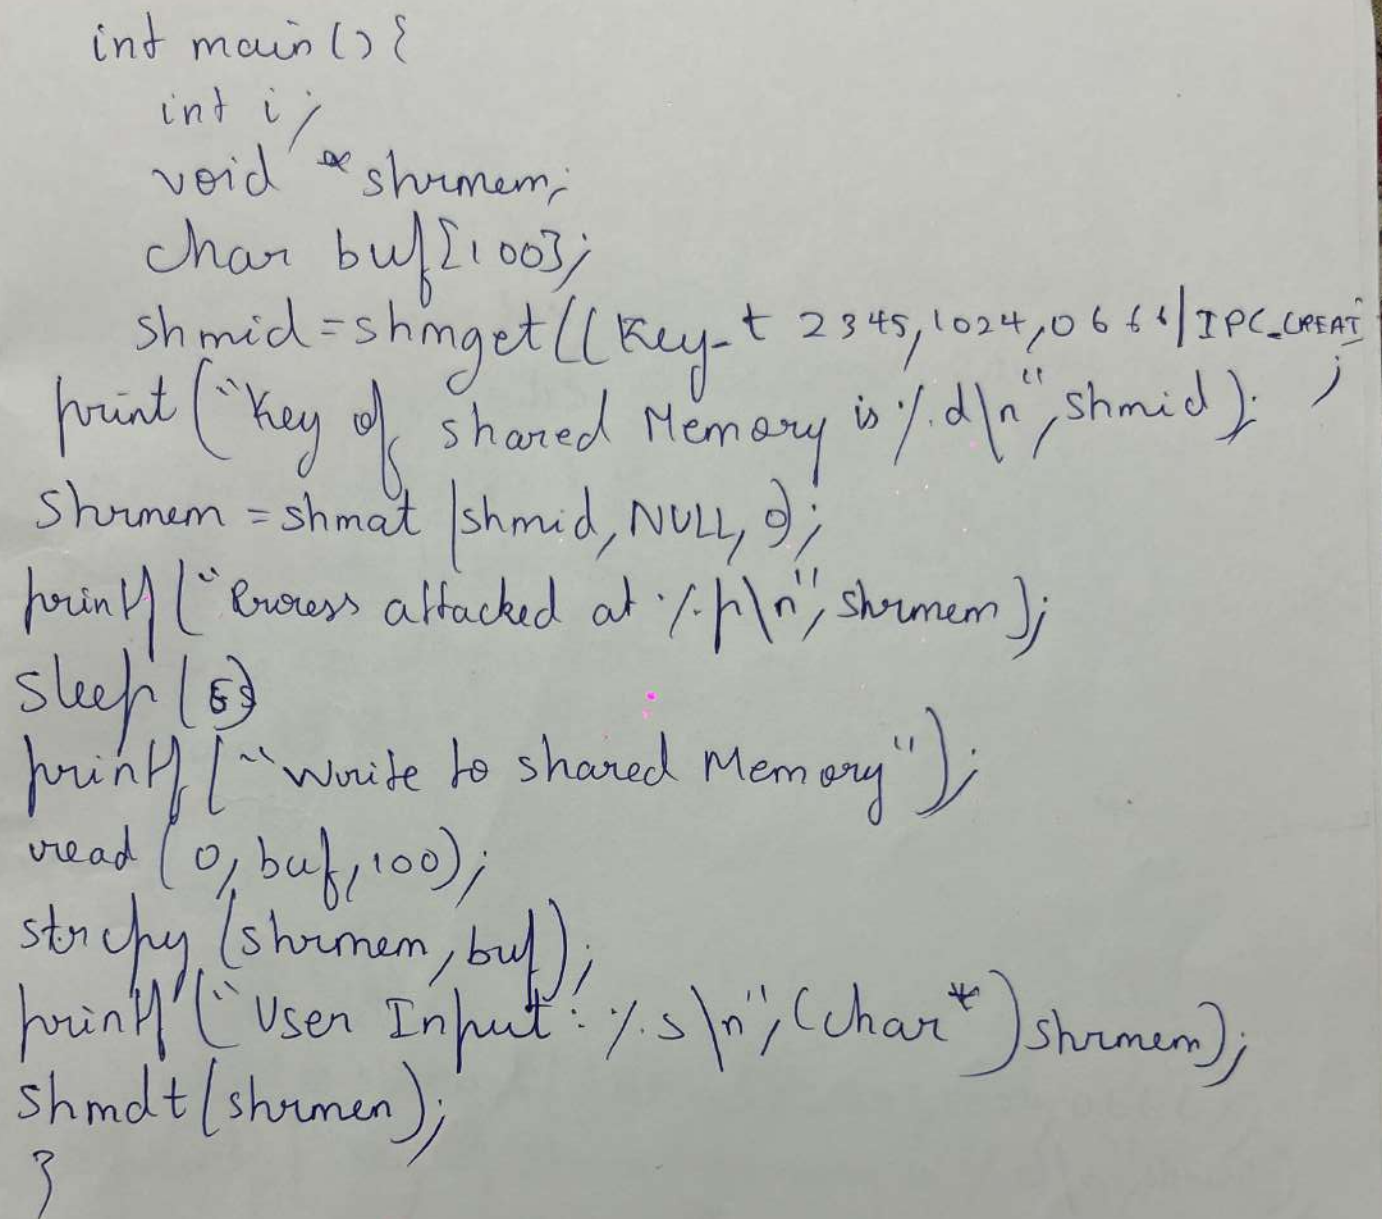 int main() {
int i;
void *shrmem;
char buf[100];
shmid=shmget((key_t 2345,1024,0666|IPC_CREAT
;
print("Key of shared Memory is %d\n",shmid);
Shrmem =shmat (shmid, NULL, 0);
printf("Process attacked at %p\n", shrmem);
sleep(5)
printf("Write to shared Memory");
read (0, buf, 100);
strcpy (shrmem, buf);
printf("User Input: %s\n", (char*)shrmem);
shmdt(shrmen);
}